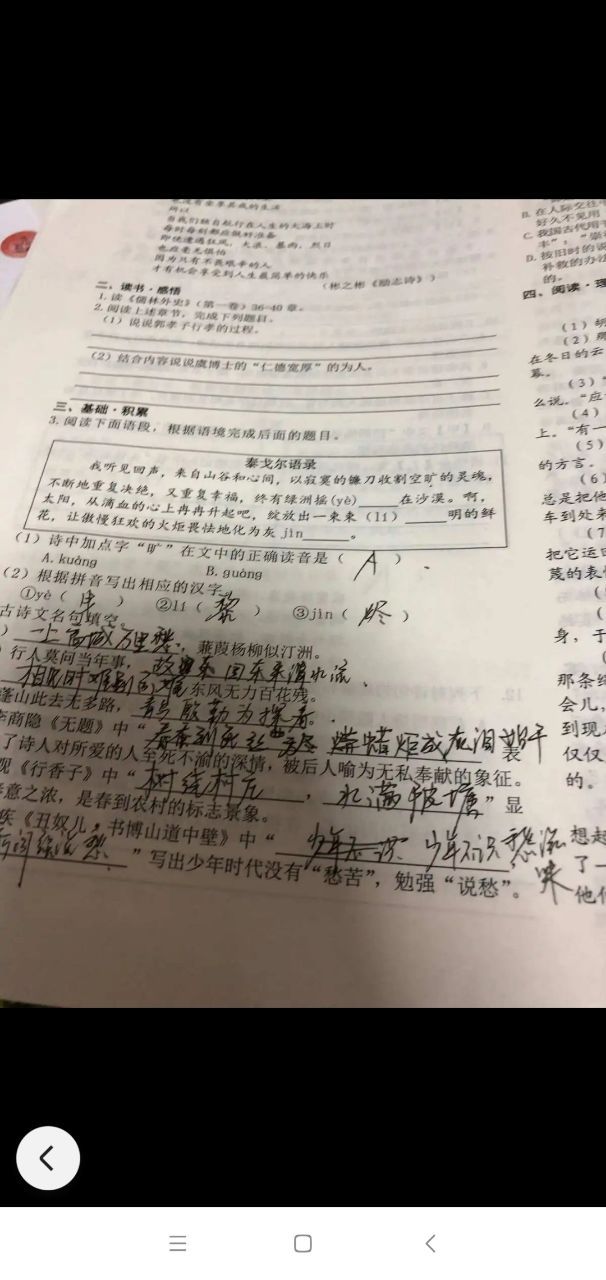 所以
当我们独自航行在人生的大海上时
每时每刻都应做好准备
即使遭遇狂风、大浪、暴雨、烈日
也应毫无惧怕
因为只有不畏艰辛的人
才有机会享受到人生最简单的快乐
(彬之彬《励志诗》)
二、读书·感悟
1.读《儒林外史》(第一卷)36-40章。
2.阅读上述章节,完成下列题目。
(1)说说郭孝子行孝的过程。
(2)结合内容说说虞博士的“仁德宽厚”的为人。
三、基础·积累
3.阅读下面语段,根据语境完成后面的题目。
泰戈尔语录
我听见回声,来自山谷和心间,以寂寞的镰刀收割空旷的灵魂,
不断地重复决绝,又重复幸福,终有绿洲摇(yè)____在沙漠。啊,
太阳,从滴血的心上冉冉升起吧,绽放出一束束(lí)____明的鲜
花,让傲慢狂欢的火炬畏怯地化为灰jìn____。
(1)诗中加点字“旷”在文中的正确读音是( A )
A.kuàng B.guàng
(2)根据拼音写出相应的汉字。
①yè( ) ②lí( 黎 ) ③jìn( 烬 )
古诗文名句填空。
一上高城万里愁,蒹葭杨柳似汀洲。
行人莫问当年事,故国东来渭水流
相见时难别亦难 东风无力百花残。
蓬山此去无多路,青鸟殷勤为探看。
李商隐《无题》中“春蚕到死丝方尽 蜡炬成灰泪始干 表
了诗人对所爱的人至死不渝的深情,被后人喻为无私奉献的象征。
观《行香子》中“树绕村庄,水满陂塘”显
春意之浓,是春到农村的标志景象。
疾《丑奴儿·书博山道中壁》中“ 少年不识愁滋
味
”写出少年时代没有“愁苦”,勉强“说愁”。
B.在人际交往中
好久不见用
C.我国古代用于
D.按旧时的说
补救的办法
的。
四、阅读·理
(1)
(2)
在冬日的云
幕。
(3)“
么说。“应
(4)
上。“有一
(5)
的方言。
(6)
总是把他
车到处来
(7
把它运回
蔑的表情
身,于
那条线
会儿,
到现
仅仅
的。
想起
了一
他们
12.